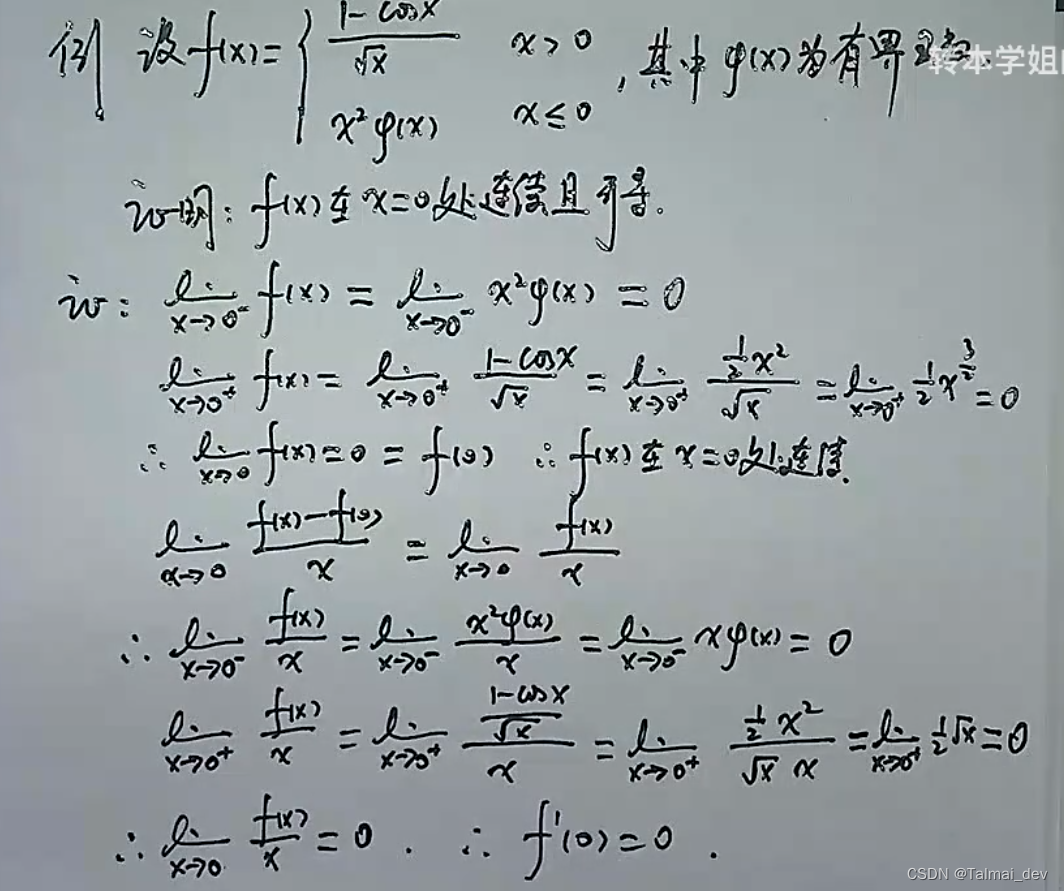 例 设 f(x) = { (1-cosx)/√x  x>0
x²φ(x)  x≤0 , 其中 φ(x) 为有界
转本学姐
证明: f(x) 在 x=0 处连续且可导。
证: lim_{x→0⁻} f(x) = lim_{x→0⁻} x²φ(x) = 0
lim_{x→0⁺} f(x) = lim_{x→0⁺} (1-cosx)/√x = lim_{x→0⁺} (½x²)/√x = lim_{x→0⁺} ½x^{3/2} = 0
∴ lim_{x→0} f(x) = 0 = f(0) ∴ f(x) 在 x=0 处连续.
lim_{x→0} (f(x)-f(0))/x = lim_{x→0} f(x)/x
∴ lim_{x→0⁻} f(x)/x = lim_{x→0⁻} x²φ(x)/x = lim_{x→0⁻} xφ(x) = 0
lim_{x→0⁺} f(x)/x = lim_{x→0⁺} ((1-cosx)/√x)/x = lim_{x→0⁺} (½x²)/(√x x) = lim_{x→0⁺} ½√x = 0
∴ lim_{x→0} f(x)/x = 0 . ∴ f'(0) = 0 .
CSDN @Talmai_dev